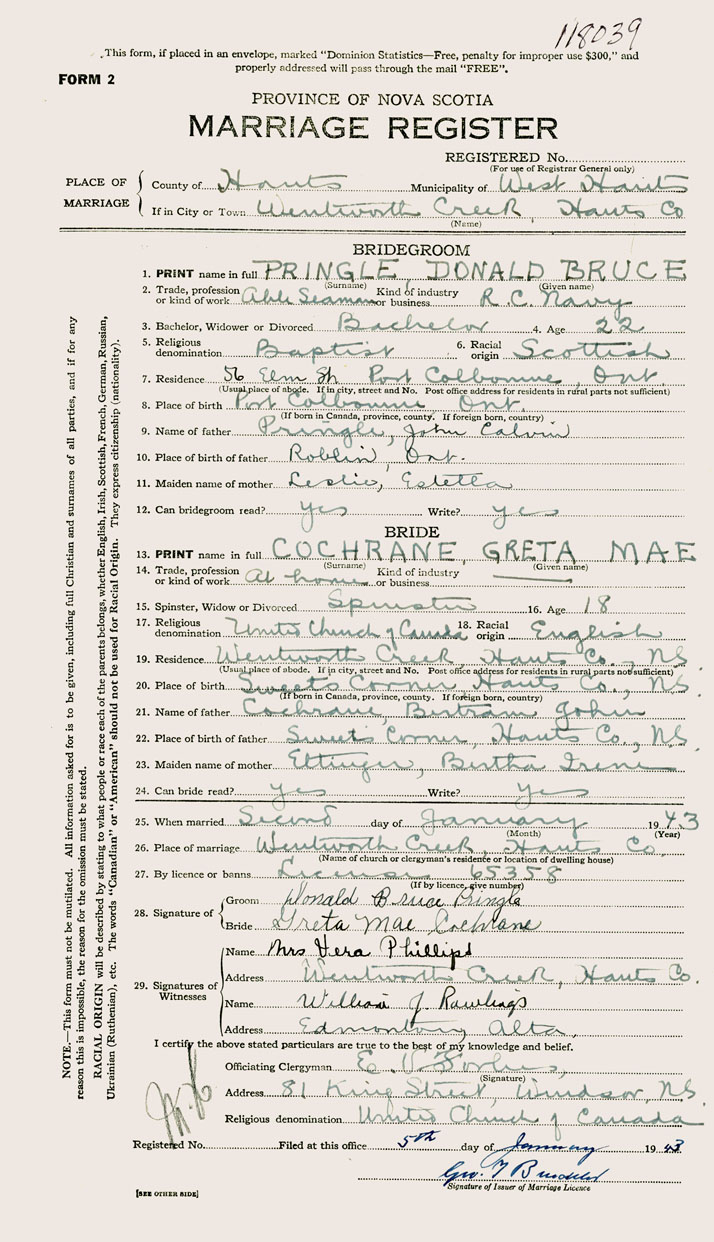 118039
This form, if placed in an envelope, marked "Dominion Statistics—Free, penalty for improper use $300," and
properly addressed will pass through the mail "FREE".
FORM 2
PROVINCE OF NOVA SCOTIA
MARRIAGE REGISTER
REGISTERED No.
(For use of Registrar General only)
PLACE OF MARRIAGE
County of Hants Municipality of West Hants
If in City or Town Wentworth Creek, Hants Co
(Name)
BRIDEGROOM
1. PRINT name in full PRINGLE DONALD BRUCE
(Surname) (Given name)
2. Trade, profession or kind of work Able Seaman Kind of industry or business R.C. Navy
3. Bachelor, Widower or Divorced Bachelor 4. Age 22
5. Religious denomination Baptist 6. Racial origin Scottish
7. Residence 56 Elm St. Port Colbourne, Ont.
(Usual place of abode. If in city, street and No. Post office address for residents in rural parts not sufficient)
8. Place of birth Port Colbourne Ont.
(If born in Canada, province, county. If foreign born, country)
9. Name of father Pringle, John Calvin
10. Place of birth of father Roblin, Ont.
11. Maiden name of mother Leslie, Estella
12. Can bridegroom read? yes Write? yes
BRIDE
13. PRINT name in full COCHRANE, GRETA MAE
(Surname) (Given name)
14. Trade, profession or kind of work At home Kind of industry or business
15. Spinster, Widow or Divorced Spinster 16. Age 18
17. Religious denomination United Church of Canada 18. Racial origin English
19. Residence Wentworth Creek, Hants Co., N.S.
(Usual place of abode. If in city, street and No. Post office address for residents in rural parts not sufficient)
20. Place of birth Sweets Corner, Hants Co., N.S.
(If born in Canada, province, county. If foreign born, country)
21. Name of father Cochrane, Bertram John
22. Place of birth of father Sweet's Corner, Hants Co., N.S.
23. Maiden name of mother Ettinger, Bertha Irene
24. Can bride read? yes Write? yes
25. When married Second day of January 1943
(Month) (Year)
26. Place of marriage Wentworth Creek, Hants Co.
(Name of church or clergyman's residence or location of dwelling house)
27. By licence or banns License 65358
(If by licence, give number)
28. Signature of
Groom Donald Bruce Pringle
Bride Greta Mae Cochrane
29. Signatures of Witnesses
Name Mrs Vera Phillips
Address Wentworth Creek, Hants Co.
Name William J. Rawlings
Address Edmonton, Alta.
I certify the above stated particulars are true to the best of my knowledge and belief.
Officiating Clergyman E. V. Forbes,
(Signature)
Address 81 King Street, Windsor, N.S.
Religious denomination United Church of Canada
Registered No. Filed at this office 5th day of January 1943
Geo. 
Signature of Issuer of Marriage Licence
[SEE OTHER SIDE]
NOTE.—This form must not be mutilated. All information asked for is to be given, including full Christian and surnames of all parties, and if for any
reason this is impossible, the reason for the omission must be stated.
RACIAL ORIGIN will be described by stating to what people or race each of the parents belongs, whether English, Irish, Scottish, French, German, Russian,
Ukrainian (Ruthenian), etc. The words "Canadian" or "American" should not be used for Racial Origin. They express citizenship (nationality).